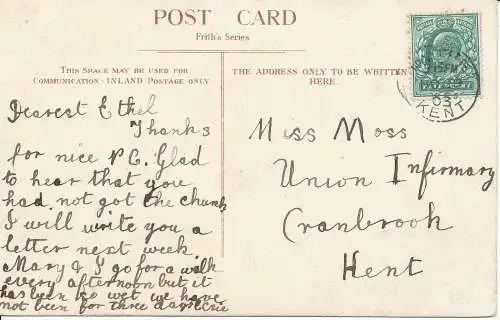 POST CARD
Frith's Series
THIS SPACE MAY BE USED FOR
COMMUNICATION - INLAND POSTAGE ONLY
THE ADDRESS ONLY TO BE WRITTEN
HERE.
Dearest Ethel
Thanks
for nice P.C. Glad
to hear that you
had not got the
I will write you a
letter next week.
Mary & I go for a walk
every afternoon but it
has been so wet we have
not been for three days
Miss Moss
Union Infirmary
Cranbrook
Kent
KENT